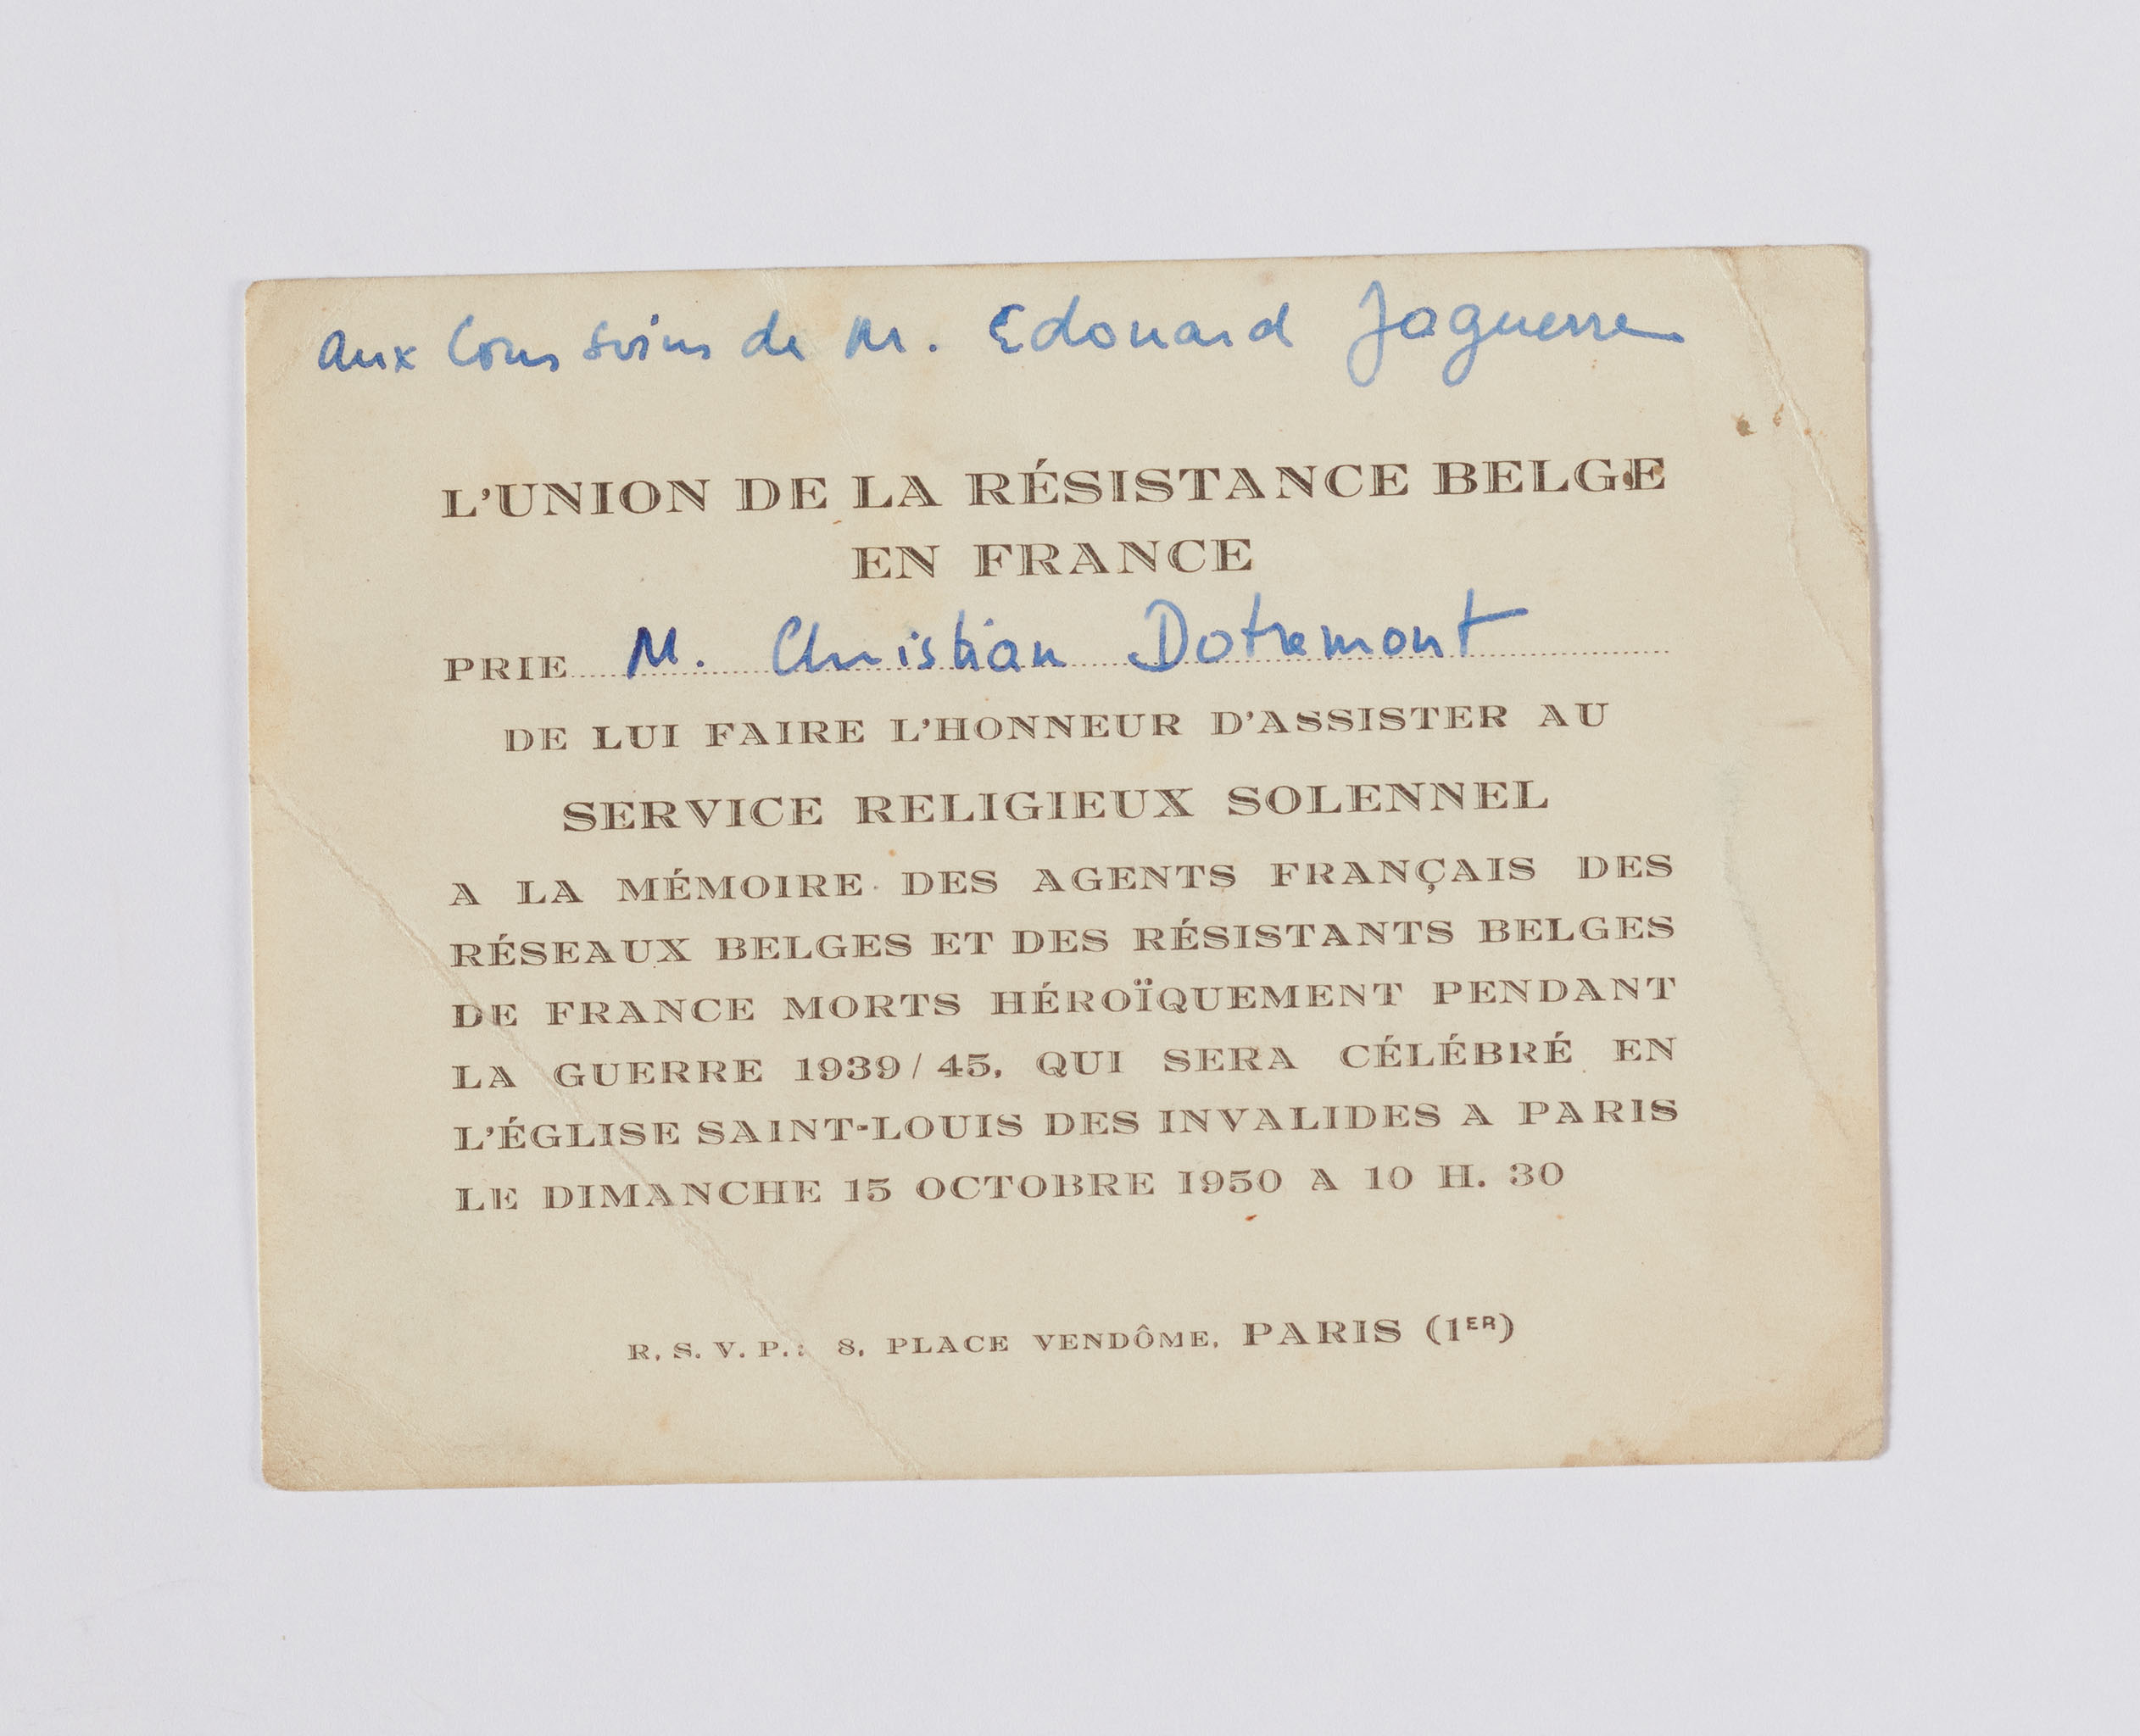 Aux bons soins de M. Edouard Jaguerre
L'UNION DE LA RÉSISTANCE BELGE
EN FRANCE
PRIE M. Christian Dotremont
DE LUI FAIRE L'HONNEUR D'ASSISTER AU
SERVICE RELIGIEUX SOLENNEL
A LA MÉMOIRE DES AGENTS FRANÇAIS DES
RÉSEAUX BELGES ET DES RÉSISTANTS BELGES
DE FRANCE MORTS HÉROÏQUEMENT PENDANT
LA GUERRE 1939/45, QUI SERA CÉLÉBRÉ EN
L'ÉGLISE SAINT-LOUIS DES INVALIDES A PARIS
LE DIMANCHE 15 OCTOBRE 1950 A 10 H. 30
R. S. V. P. : 8, PLACE VENDÔME, PARIS (1ER)